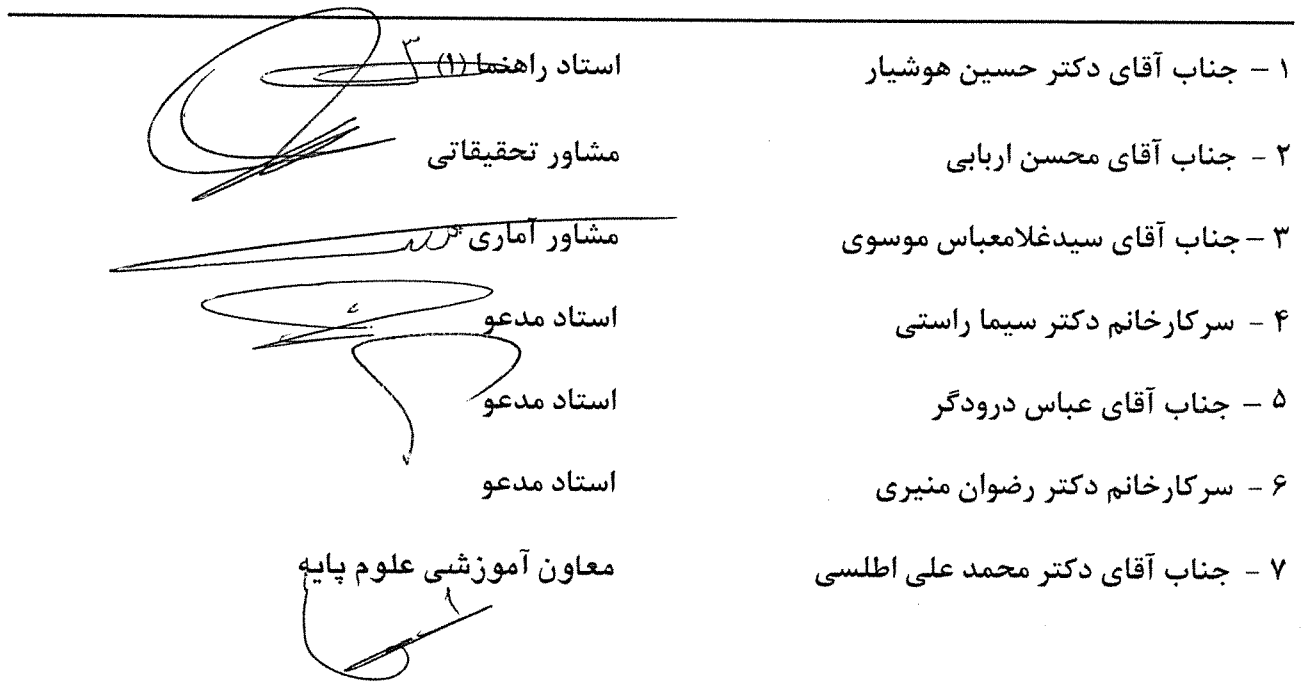 ۱ – جناب آقای دکتر حسین هوشیار استاد راهنما (۱)
۲ - جناب آقای محسن اربابی مشاور تحقیقاتی
۳ – جناب آقای سیدغلامعباس موسوی مشاور آماری
۴ - سرکارخانم دکتر سیما راستی استاد مدعو
۵ – جناب آقای عباس درودگر استاد مدعو
۶ - سرکارخانم دکتر رضوان منیری استاد مدعو
۷ - جناب آقای دکتر محمد علی اطلسی معاون آموزشی علوم پایه